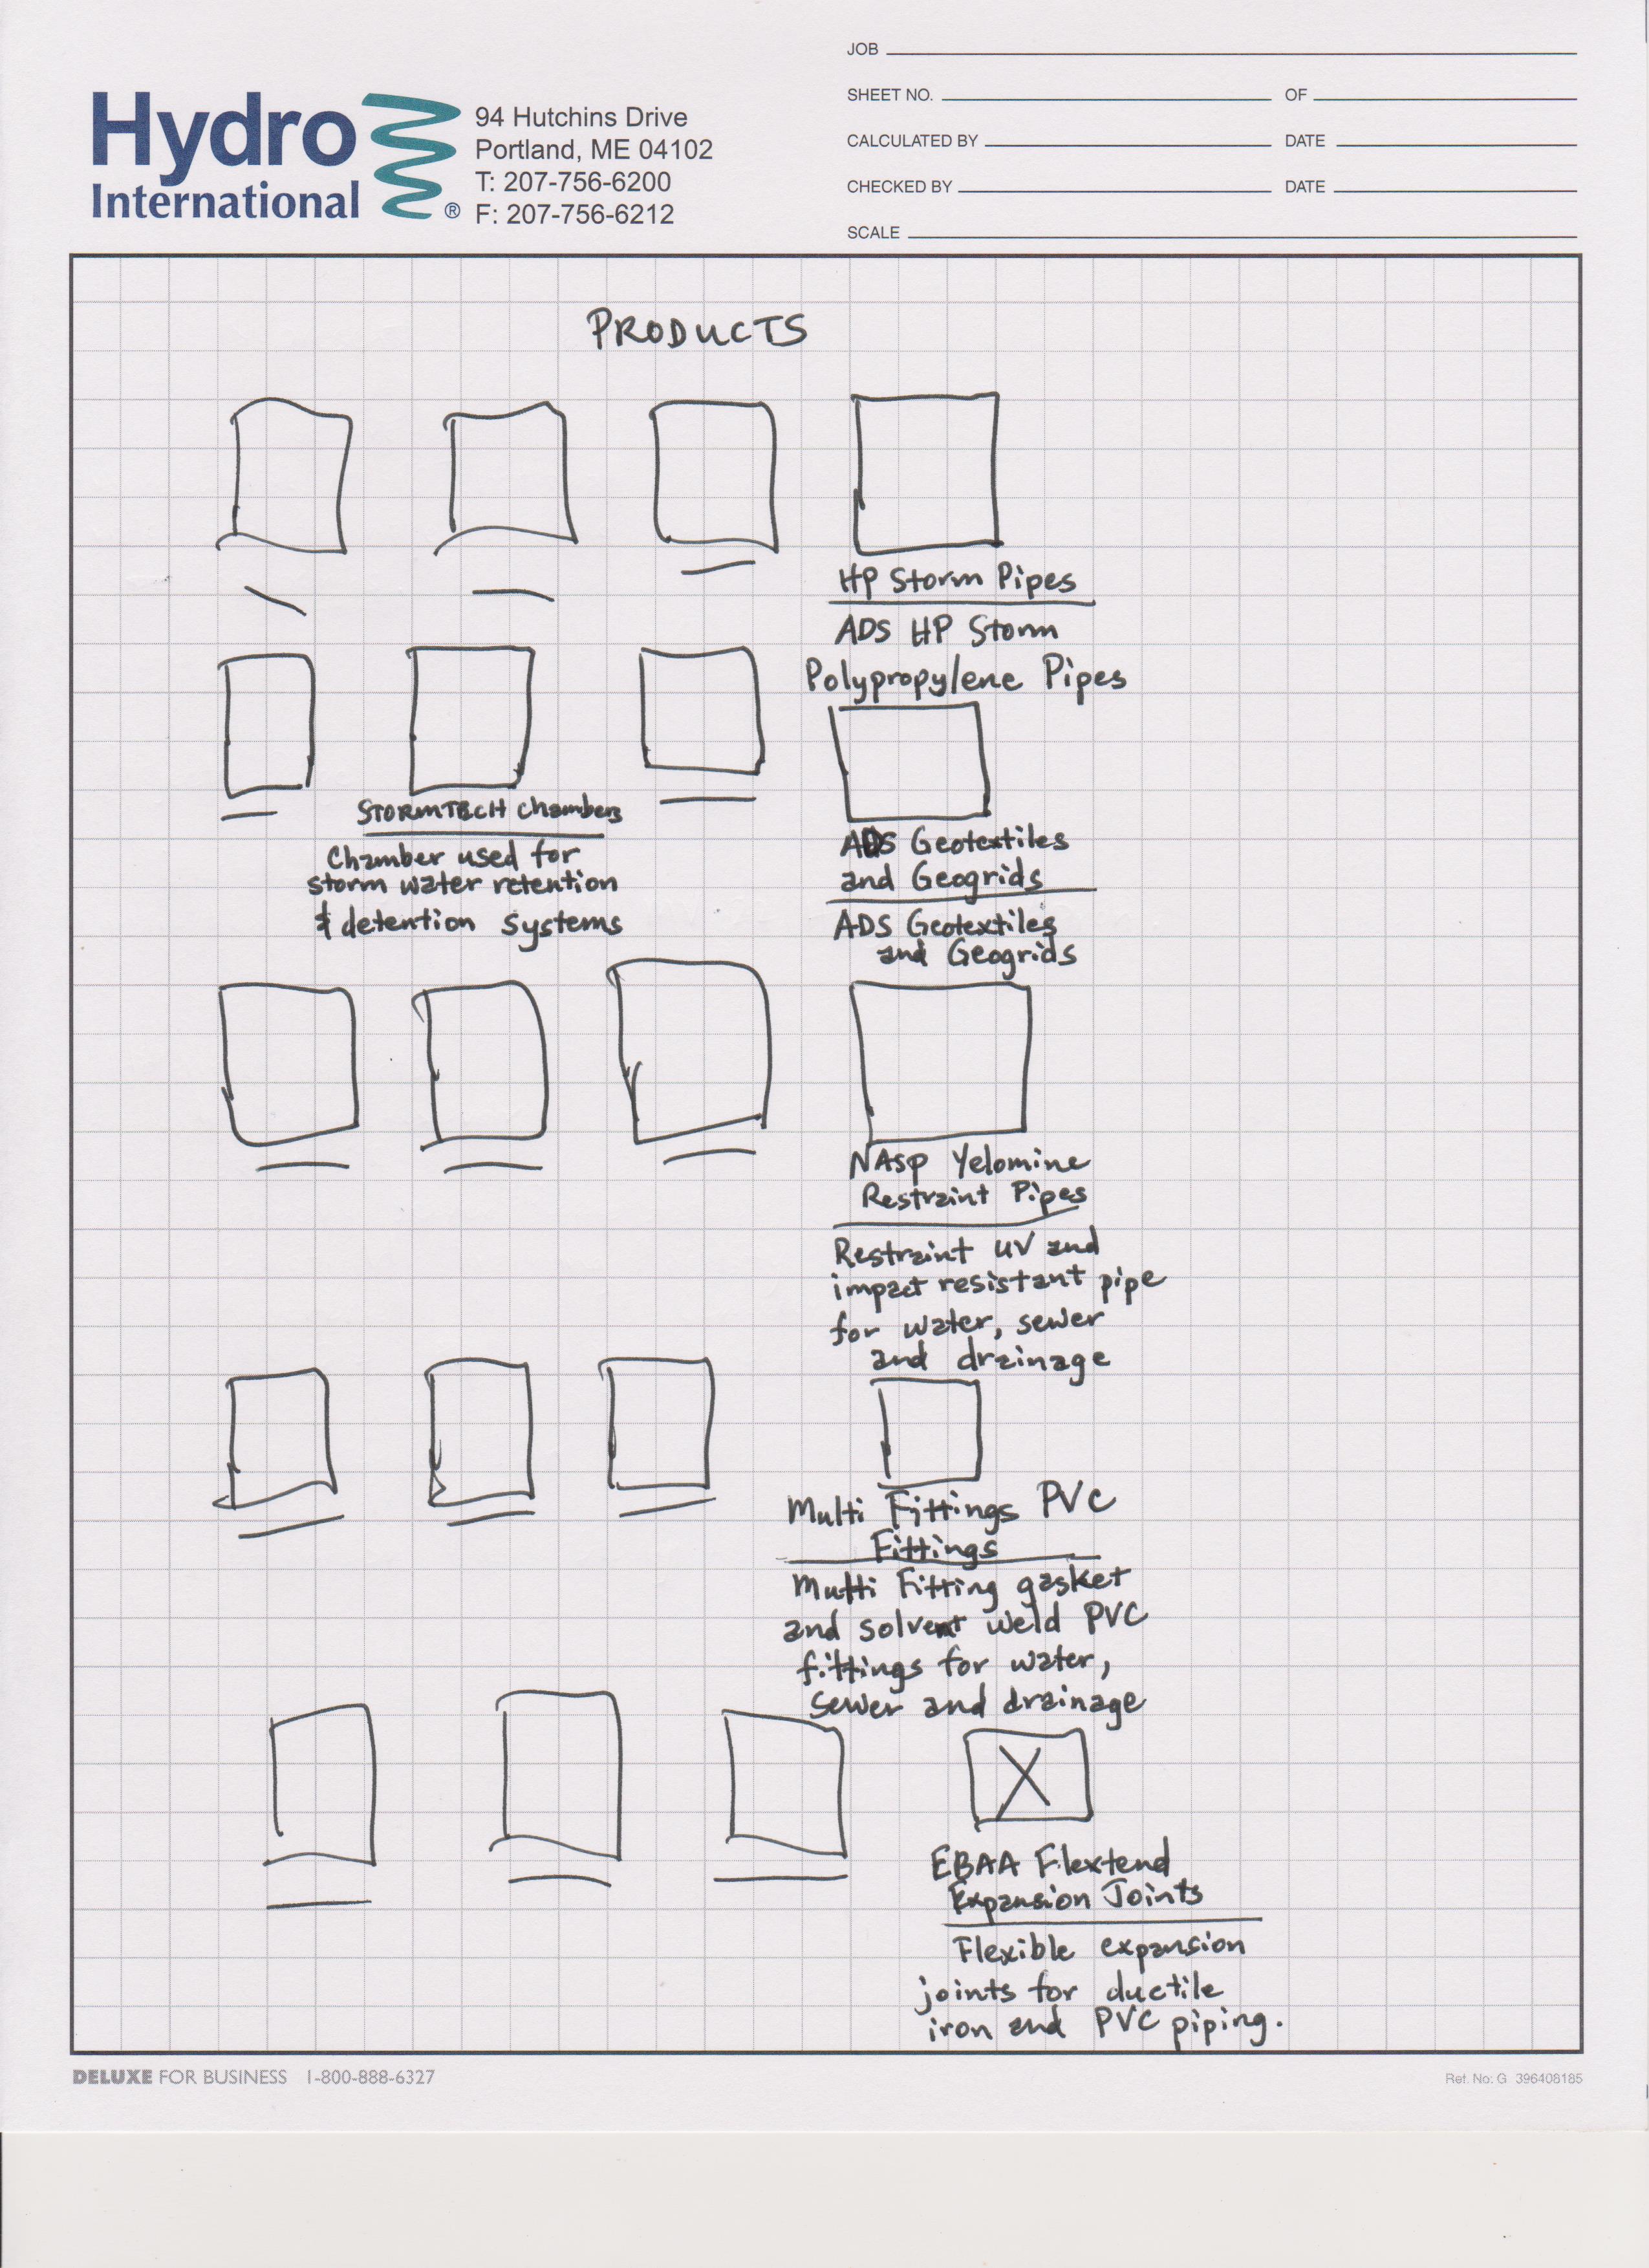 Hydro
International
®
94 Hutchins Drive
Portland, ME 04102
T: 207-756-6200
F: 207-756-6212
JOB
SHEET NO. OF
CALCULATED BY DATE
CHECKED BY DATE
SCALE
PRODUCTS
HP Storm Pipes
ADS HP Storm
Polypropylene Pipes
STORMTECH Chambers
Chamber used for
storm water retention
& detention systems
ADS Geotextiles
and Geogrids
ADS Geotextiles
and Geogrids
NASP Yelomine
Restraint Pipes
Restraint UV and
impact resistant pipe
for water, sewer
and drainage
Multi Fittings PVC
Fittings
Multi Fitting gasket
and solvent weld PVC
fittings for water,
sewer and drainage
X
EBAA Flextend
Expansion Joints
Flexible expansion
joints for ductile
iron and PVC piping.
DELUXE FOR BUSINESS 1-800-888-6327
Ref. No: G 396408185